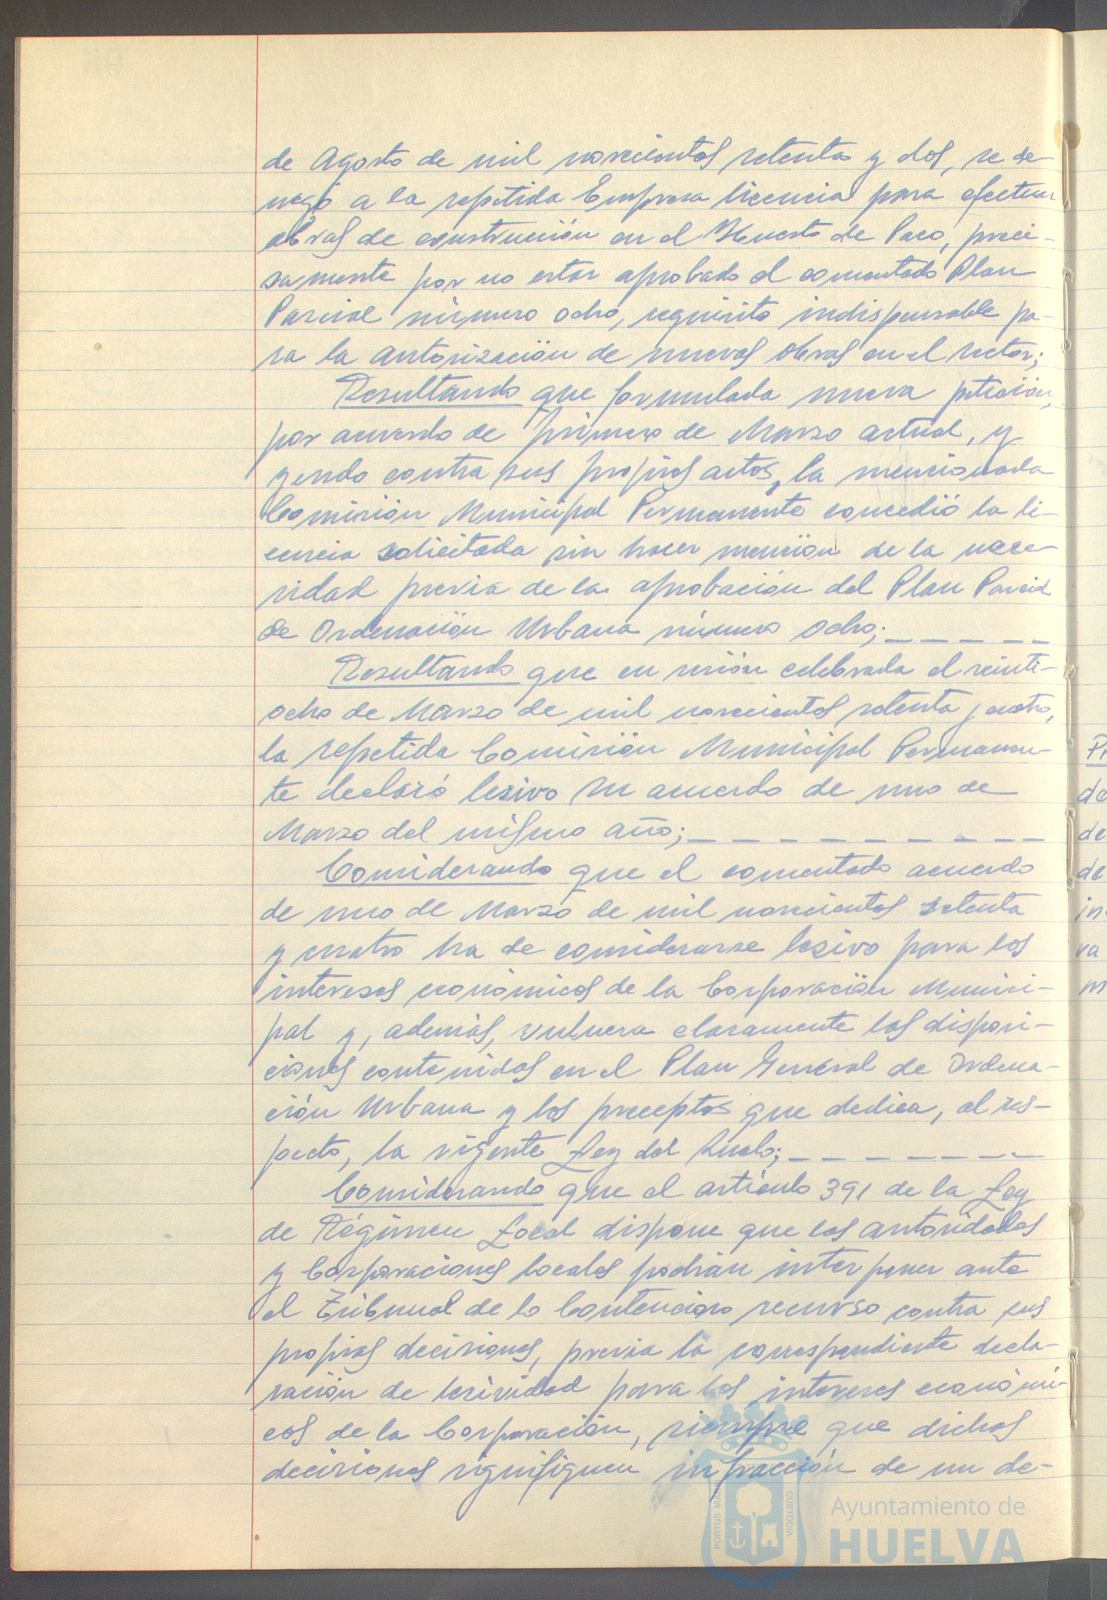 de Agosto de mil novecientos setenta y dos, se de-
negó a la repetida Empresa licencia para efectuar
obras de construcción en el Huerto de Paco, preci-
samente por no estar aprobado el comentado Plan
Parcial número ocho, requisito indispensable pa-
ra la autorización de nuevas obras en el sector;
Resultando que formulada nueva petición,
por acuerdo de primero de Marzo actual, y
yendo contra sus propios actos, la mencionada
Comisión Municipal Permanente concedió la li-
cencia solicitada sin hacer mención de la nece-
sidad previa de la aprobación del Plan Parcial
de Ordenación Urbana número ocho;
Resultando que en sesión celebrada el veinti-
ocho de Marzo de mil novecientos setenta y cuatro,
la repetida Comisión Municipal Permanen-
te declaró lesivo su acuerdo de uno de
Marzo del mismo año;
Considerando que el comentado acuerdo
de uno de Marzo de mil novecientos setenta
y cuatro ha de considerarse lesivo para los
intereses económicos de la Corporación Munici-
pal y, además, vulnera claramente las disposi-
ciones contenidas en el Plan General de Ordena-
ción Urbana y los preceptos que dedica, al res-
pecto, la vigente Ley del Suelo;
Considerando que el artículo 391 de la Ley
de Régimen Local dispone que las autoridades
y Corporaciones locales podrán interponer ante
el Tribunal de lo Contencioso recurso contra sus
propias decisiones, previa la correspondiente decla-
ración de lesividad para los intereses económi-
cos de la Corporación, siempre que dichas
decisiones signifiquen infracción de un de-
PORTUS MARIS CUSTODIA
Ayuntamiento de
HUELVA
de
de
de
in
va
m